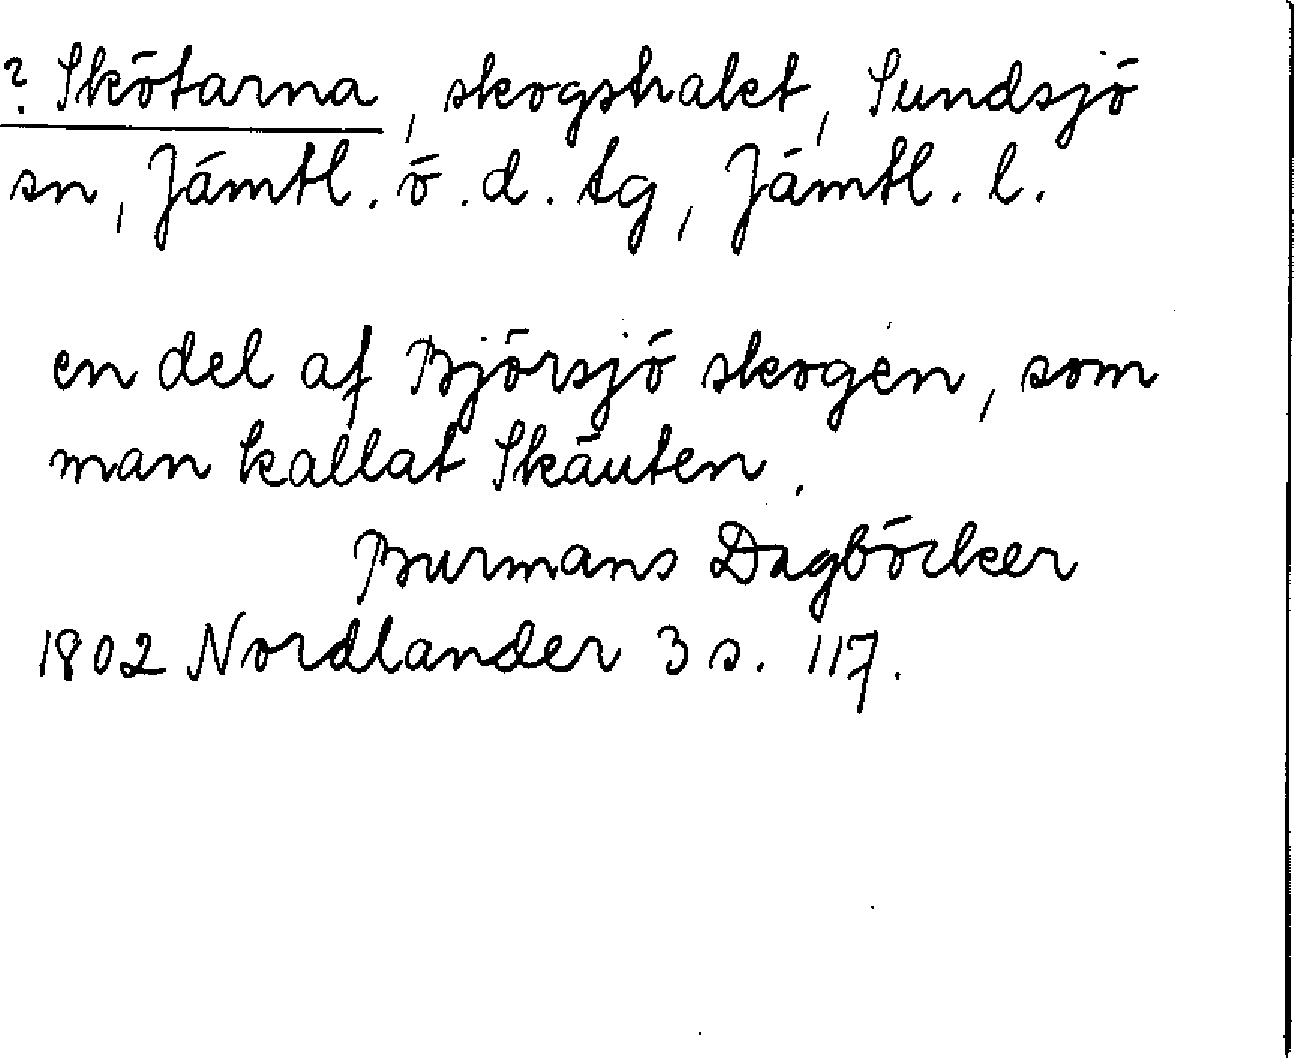 ? Skötarna, skogstrakt, Sundsjö
sn, Jämtl. ö. d. tg, Jämtl. l.
en del af Björsjö skogen, som
man kallat Skäuten.
Burmans Dagböcker
1802 Nordlander 3 s. 117.